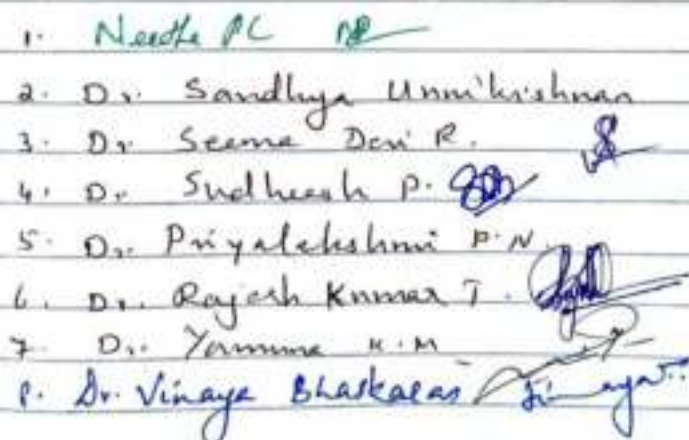 1. Neetha PC
2. Dr. Sandhya Unnikrishnan
3. Dr. Seema Devi R.
4. Dr. Sudheesh P.
5. Dr. Priyalekshmi P.N.
6. Dr. Rajesh Kumar T.
7. Dr. Yamuna K.M
8. Dr. Vinaya Bhaskaran